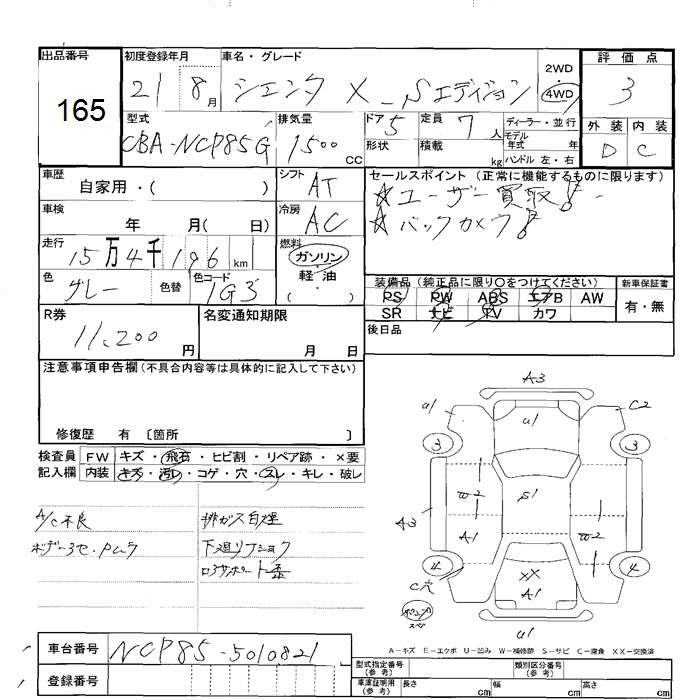 出品番号
165
初度登録年月
21 8月
車名・グレード
シエンタ X_Sエディション
2WD
4WD
評価点
3
外装 内装
D C
型式
CBA-NCP85G
排気量
1500 CC
ドア 5
形状
定員 7 人
積載 kg
ディーラー・並行
モデル年式 年
ハンドル 左・右
車歴
自家用・( )
シフト AT
車検
年 月( 日)
冷房 AC
走行
15万4千196 km
燃料
ガソリン
・
軽油
( ・ )
色
グレー
色替
色コード
1G3
セールスポイント (正常に機能するものに限ります)
☆ユーザー買取!
☆バックカメラ!
装備品 (純正品に限り〇をつけてください)
PS PW ABS エアB AW
SR ナビ TV カワ
新車保証書
有・無
後日品
R券
11,200 円
名変通知期限
月 日
注意事項申告欄 (不具合内容等は具体的に記入して下さい)
修復歴 有 〔箇所 〕
検査員 FW キズ・飛石・ヒビ割・リペア跡・×要
記入欄 内装 キズ・汚レ・コゲ・穴・スレ・キレ・破レ
A/C不良
排ガス白煙
下廻リ
A3
u1
u1
C2
3
3
W2
S1
A3
A1
W2
4
4
C穴
XX
A1
u1
A-キズ E-エクボ U-凹み W-補修跡 S-サビ C-腐食 XX-交換済
車台番号 NCP85-5010821
登録番号
型式指定番号(参考)
類別区分番号(参考)
車庫証明用(参考) 長さ cm 幅 cm 高さ cm